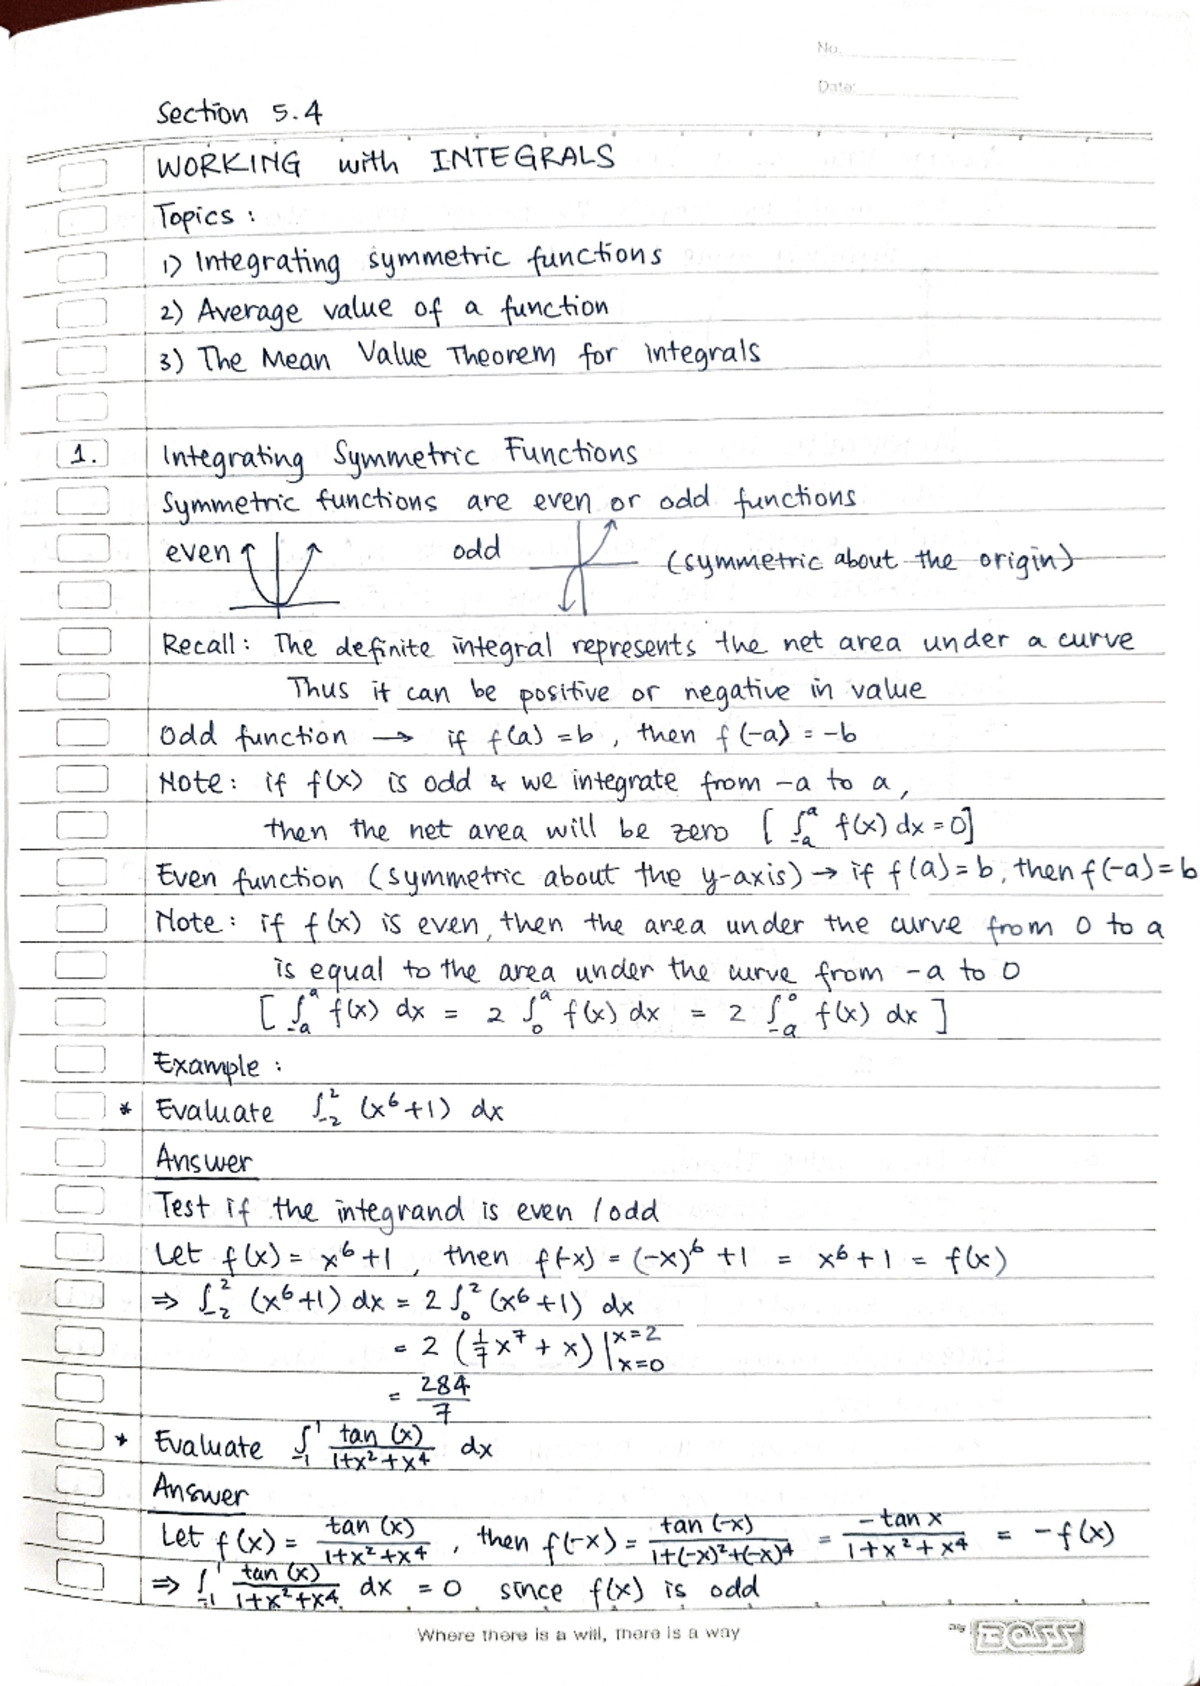 No.
Date:
Section 5.4
WORKING with INTEGRALS
Topics :
1) Integrating symmetric functions
2) Average value of a function
3) The Mean Value Theorem for integrals
1. Integrating Symmetric Functions
Symmetric functions are even or odd functions
even odd (symmetric about the origin)
Recall : The definite integral represents the net area under a curve
Thus it can be positive or negative in value
Odd function → if f(a) = b , then f(-a) = -b
Note : if f(x) is odd & we integrate from -a to a,
then the net area will be zero [ ∫₋ₐᵃ f(x) dx = 0]
Even function (symmetric about the y-axis) → if f(a) = b, then f(-a) = b
Note : if f(x) is even, then the area under the curve from 0 to a
is equal to the area under the curve from -a to 0
[ ∫₋ₐᵃ f(x) dx = 2 ∫₀ᵃ f(x) dx = 2 ∫₋ₐ⁰ f(x) dx ]
Example :
* Evaluate ∫₋₂² (x⁶+1) dx
Answer
Test if the integrand is even / odd
Let f(x) = x⁶+1 , then f(-x) = (-x)⁶ +1 = x⁶ + 1 = f(x)
⇒ ∫₋₂² (x⁶+1) dx = 2 ∫₀² (x⁶+1) dx
= 2 (1/7 x⁷ + x) |x=2 x=0
= 284/7
* Evaluate ∫₋₁¹ tan (x)/1+x²+x⁴ dx
Answer
Let f(x) = tan (x)/1+x²+x⁴ , then f(-x) = tan (-x)/1+(-x)²+(-x)⁴ = -tan x/1+x²+x⁴ = -f(x)
⇒ ∫₋₁¹ tan (x)/1+x²+x⁴ dx = 0 since f(x) is odd
Where there is a will, there is a way
BOSS